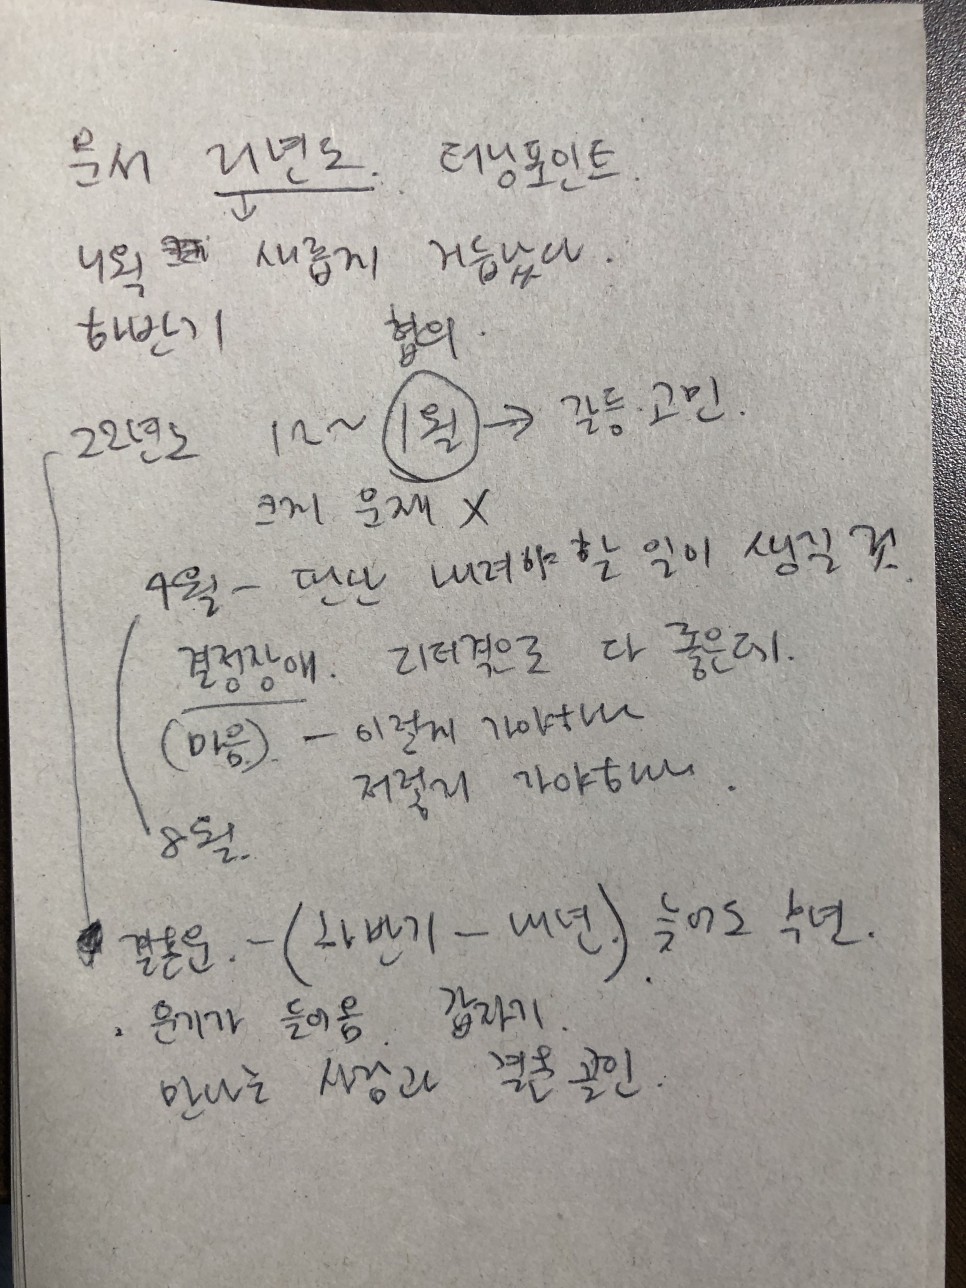 문서 21년도. 터닝포인트.
4월 새롭게 거듭났다.
하반기 협의.
22년도 12~1월 → 갈등.고민.
크게 문제 X
4월 - 판단 내려야 할 일이 생길 것.
결정장애. 디테적으로 다 좋은데.
(마음) - 이렇게 가야하나
저렇게 가야하나.
8월.
결혼운. - (하반기 - 내년.) 늦어도 후년.
. 운기가 들어옴. 갑자기.
만나는 사람과 결혼 골인.